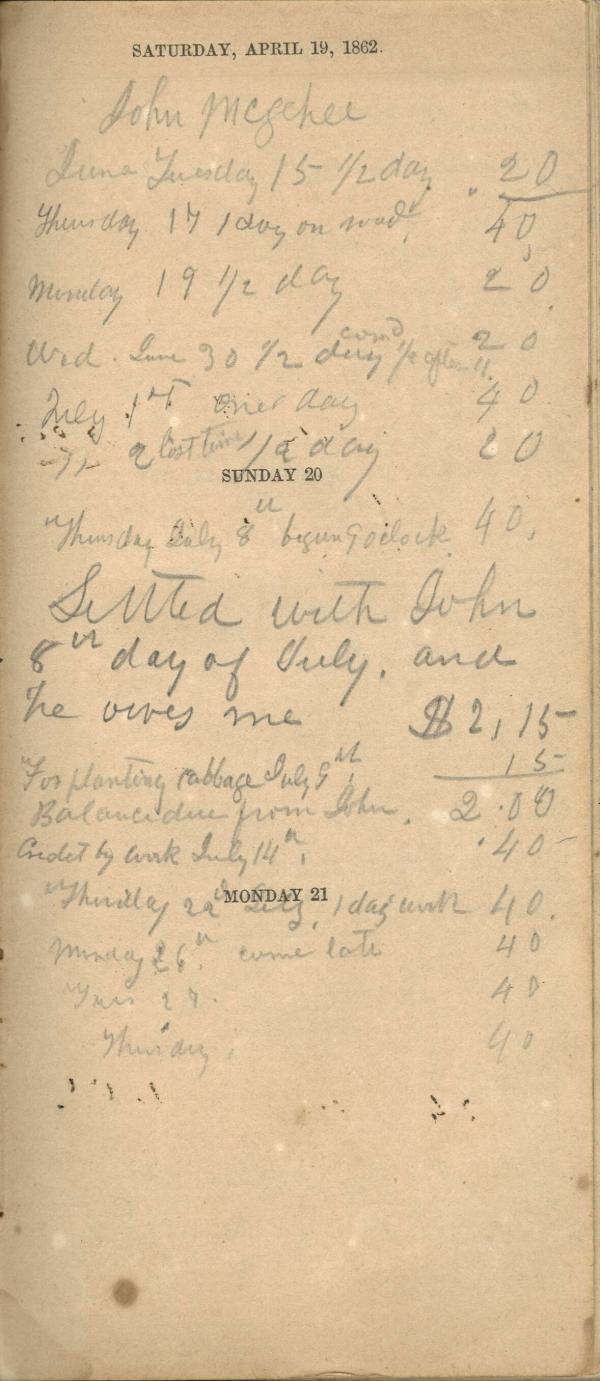 SATURDAY, APRIL 19, 1862.
John McGehee
June Tuesday 15 1/2 day 20
Thursday 17 1 day on road 40
Monday 19 1/2 day 20
Wed. June 30 1/2 day 1/2 after 20
July 1st one day 40
2 lost time 1/2 day 20
SUNDAY 20
Thursday July 8th begun 9 oclock 40
Settled with John
8th day of July, and
he owes me $2,15
For planting cabbage July 9th, 15
Balance due from John. 2.00
Credet by work July 14th, .40
Thursday 22d July, 1 day work 40.
MONDAY 21
Monday 26th come late 40
Tues 27. 40
Thursday 40